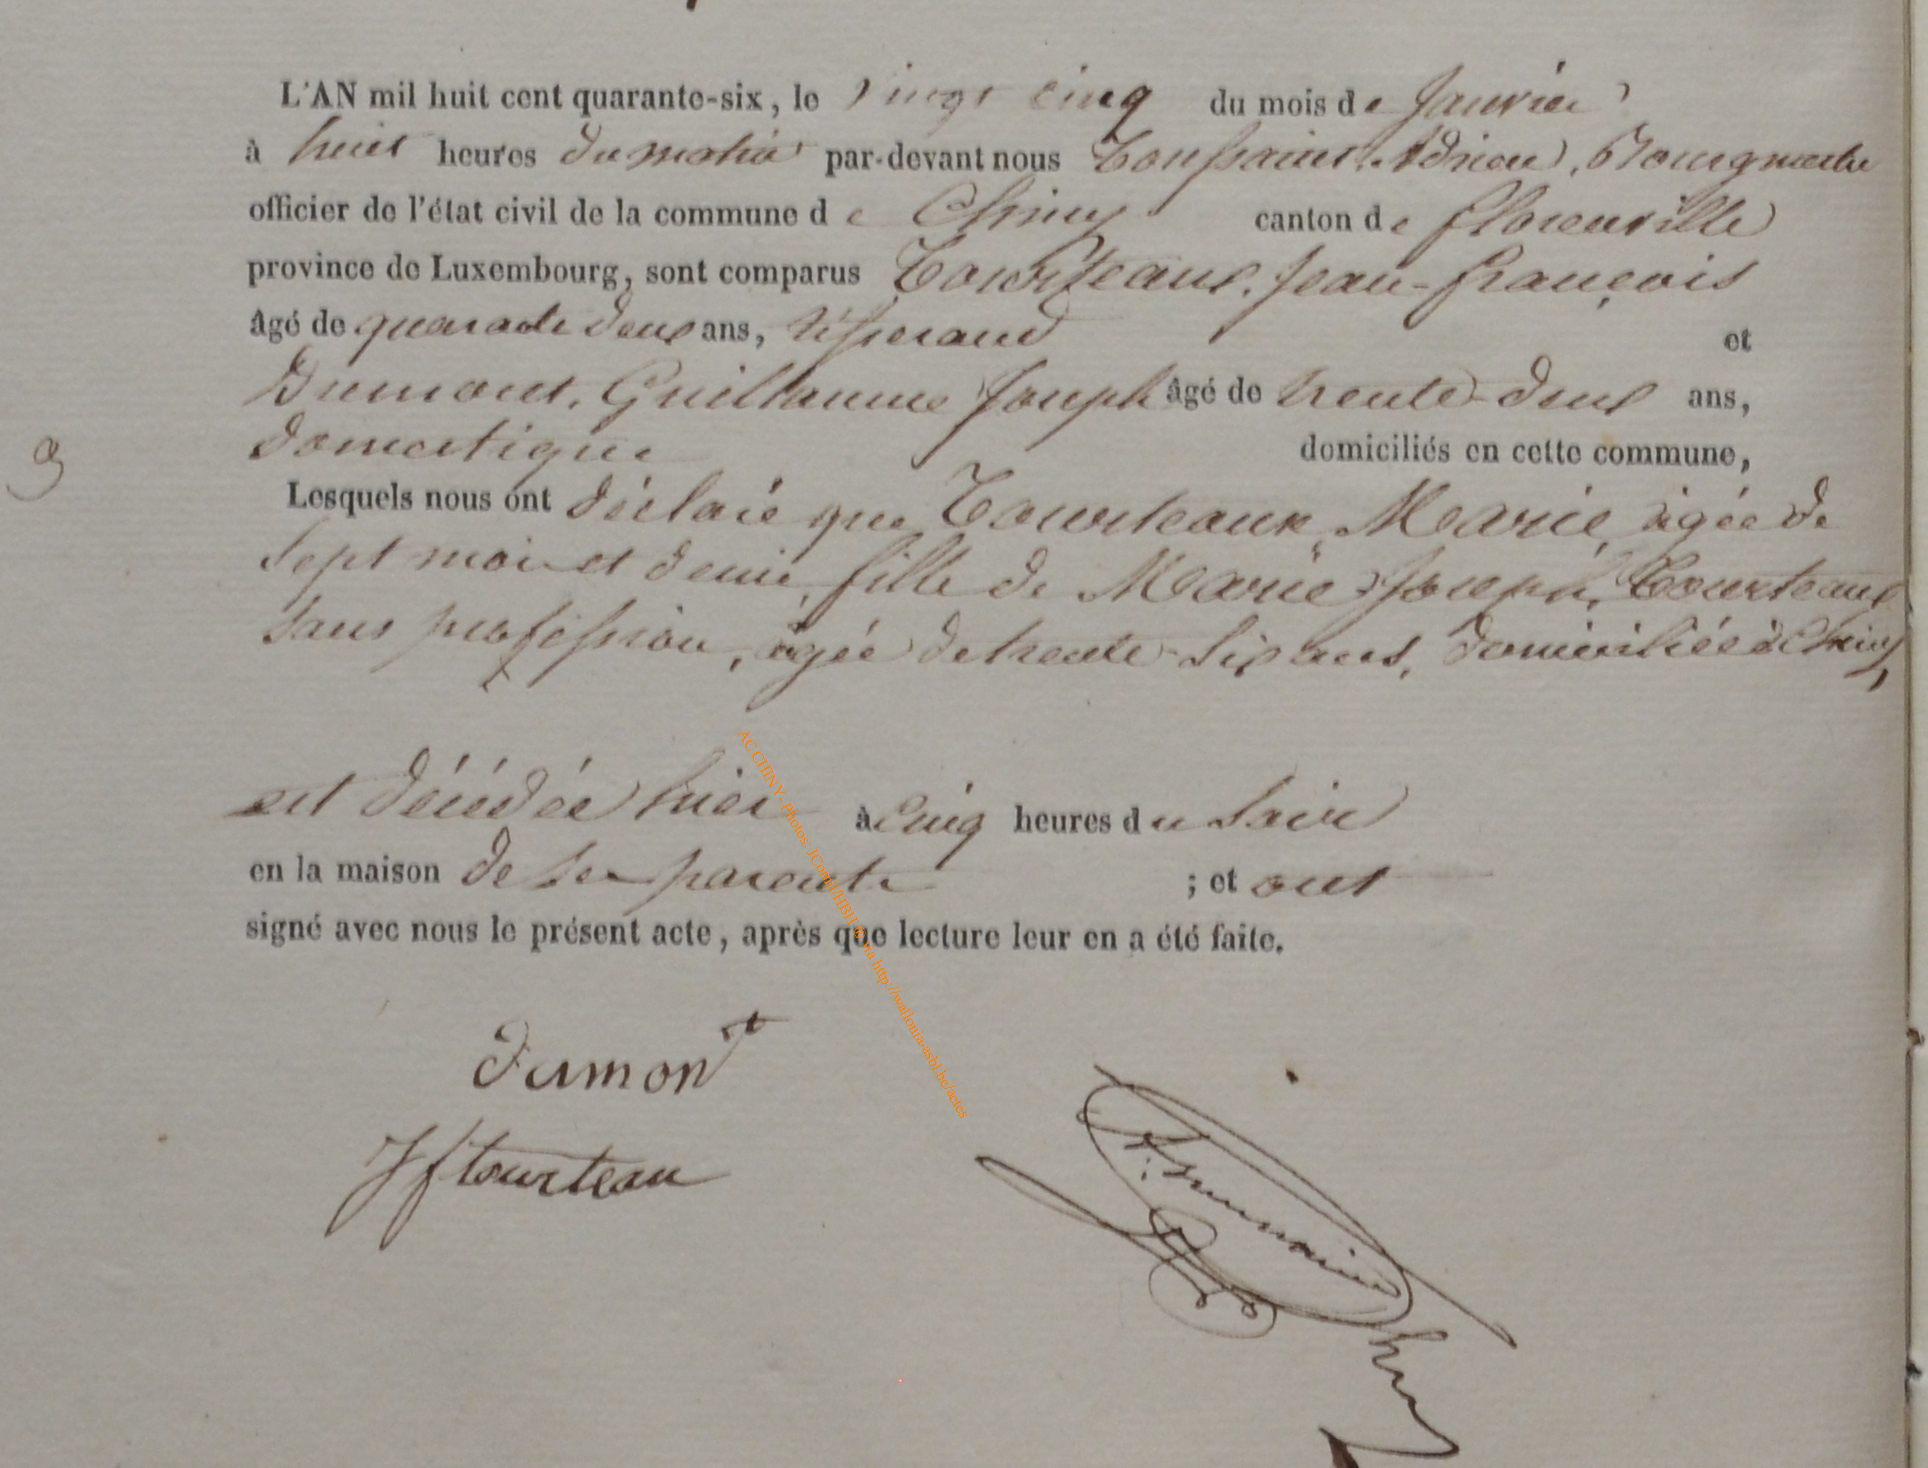 L'AN mil huit cent quarante-six, le vingt cinq du mois de Janvier
à huit heures du matin par-devant nous Toussaint Adrien, Bourgmestre
officier de l'état civil de la commune de Chiny canton de florenville
province de Luxembourg, sont comparus Tourteaux, Jean-françois
âgé de quarante deux ans, tisserand et
Dumont, Guillaume Joseph âgé de trente-deux ans,
domestique domiciliés en cette commune,
9
Lesquels nous ont déclaré que Tourteaux Marie, agée de
sept mois et demie, fille de Marie Joseph, Tourteaux
sans profession, agée de trente-six ans, domiciliée à Chiny,
est décédée hier à cinq heures du soir
en la maison de ses parents ; et ont
signé avec nous le présent acte, après que lecture leur en a été faite.
dumont
Jftourteau
AC CHINY - Photos: http://wallonia-asbl.be/actes